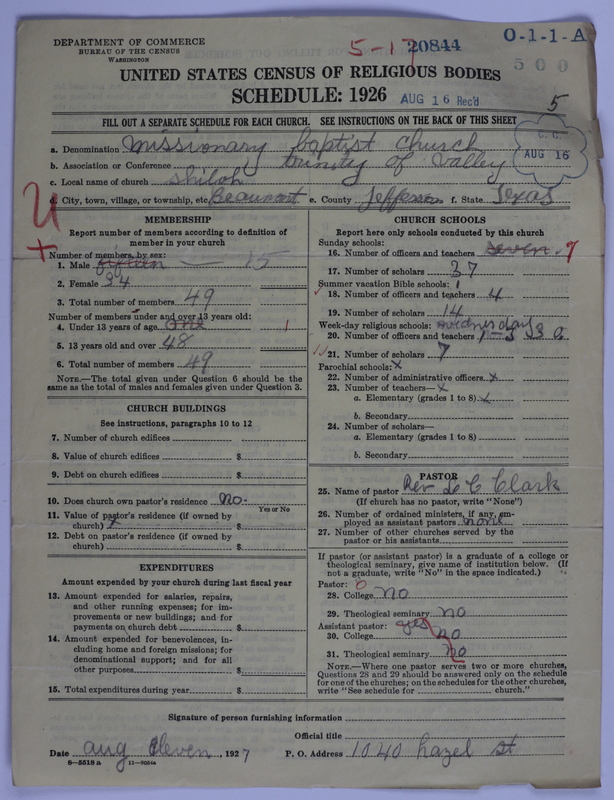 DEPARTMENT OF COMMERCE
BUREAU OF THE CENSUS
WASHINGTON
5-17 20844
O-1-1-A
500
UNITED STATES CENSUS OF RELIGIOUS BODIES
SCHEDULE: 1926
AUG 16 Rec'd
5
FILL OUT A SEPARATE SCHEDULE FOR EACH CHURCH. SEE INSTRUCTIONS ON THE BACK OF THIS SHEET
a. Denomination Missionary baptist Church
b. Association or Conference trinity of Valley
C. C. AUG 16
c. Local name of church Shiloh
d. City, town, village, or township, etc. Beaumont e. County Jefferson f. State Texas
MEMBERSHIP
Report number of members according to definition of
member in your church
Number of members, by sex:
1. Male fifteen — 15
2. Female 34
3. Total number of members 49
Number of members under and over 13 years old:
4. Under 13 years of age one 1
5. 13 years old and over 48
6. Total number of members 49
NOTE.—The total given under Question 6 should be the
same as the total of males and females given under Question 3.
CHURCH BUILDINGS
See instructions, paragraphs 10 to 12
7. Number of church edifices
8. Value of church edifices $
9. Debt on church edifices $
10. Does church own pastor's residence No.
Yes or No
11. Value of pastor's residence (if owned by
church) x $
12. Debt on pastor's residence (if owned by
church) $
EXPENDITURES
Amount expended by your church during last fiscal year
13. Amount expended for salaries, repairs,
and other running expenses; for im-
provements or new buildings; and for
payments on church debt $
14. Amount expended for benevolences, in-
cluding home and foreign missions; for
denominational support; and for all
other purposes $
15. Total expenditures during year $
CHURCH SCHOOLS
Report here only schools conducted by this church
Sunday schools:
16. Number of officers and teachers seven. 7
17. Number of scholars 37
Summer vacation Bible schools: 1
18. Number of officers and teachers 4
19. Number of scholars 14
Week-day religious schools: wednesday
20. Number of officers and teachers
21. Number of scholars 7
Parochial schools: x
22. Number of administrative officers x
23. Number of teachers— x
a. Elementary (grades 1 to 8) x
b. Secondary
24. Number of scholars—
a. Elementary (grades 1 to 8)
b. Secondary
PASTOR
25. Name of pastor Rev L C Clark
(If church has no pastor, write "None")
26. Number of ordained ministers, if any, em-
ployed as assistant pastors none
27. Number of other churches served by the
pastor or his assistants
If pastor (or assistant pastor) is a graduate of a college or
theological seminary, give name of institution below. (If
not a graduate, write "No" in the space indicated.)
Pastor: 0
28. College no
29. Theological seminary no
Assistant pastor: yes
30. College no
31. Theological seminary no
NOTE.—Where one pastor serves two or more churches,
Questions 28 and 29 should be answered only on the schedule
for one of the churches; on the schedules for the other churches,
write "See schedule for church."
Signature of person furnishing information
Official title
Date aug Eleven, 1927 P. O. Address 1040 hazel st
8-5518a 11-9024a